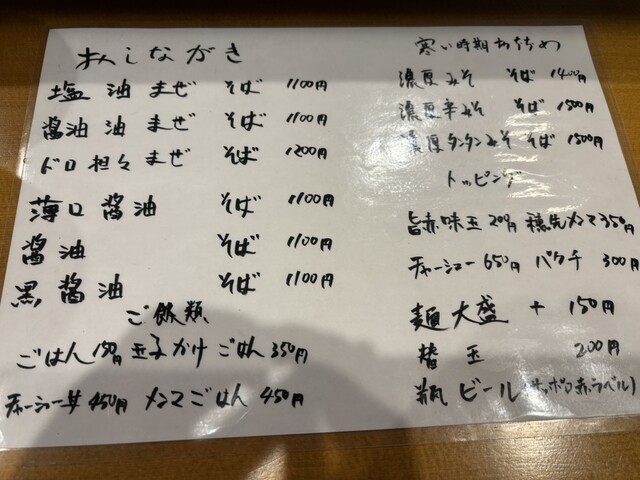 おしながき
塩油まぜ そば 1100円
醤油油まぜ そば 1100円
ドロ担々まぜ そば 1200円
薄口醤油 そば 1100円
醤油 そば 1100円
黒醤油 そば 1100円
ご飯類
ごはん150円 玉子かけごはん350円
チャーシュー丼450円 メンマごはん450円
寒い時期おすすめ
濃厚みそ そば 1400円
濃厚辛みそ そば 1500円
濃厚タンタンみそ そば 1500円
トッピング
旨赤味玉200円 穂先メンマ350円
チャーシュー650円 パクチ 300円
麺大盛 + 150円
替玉 200円
瓶ビール(サッポロ赤ラベル)